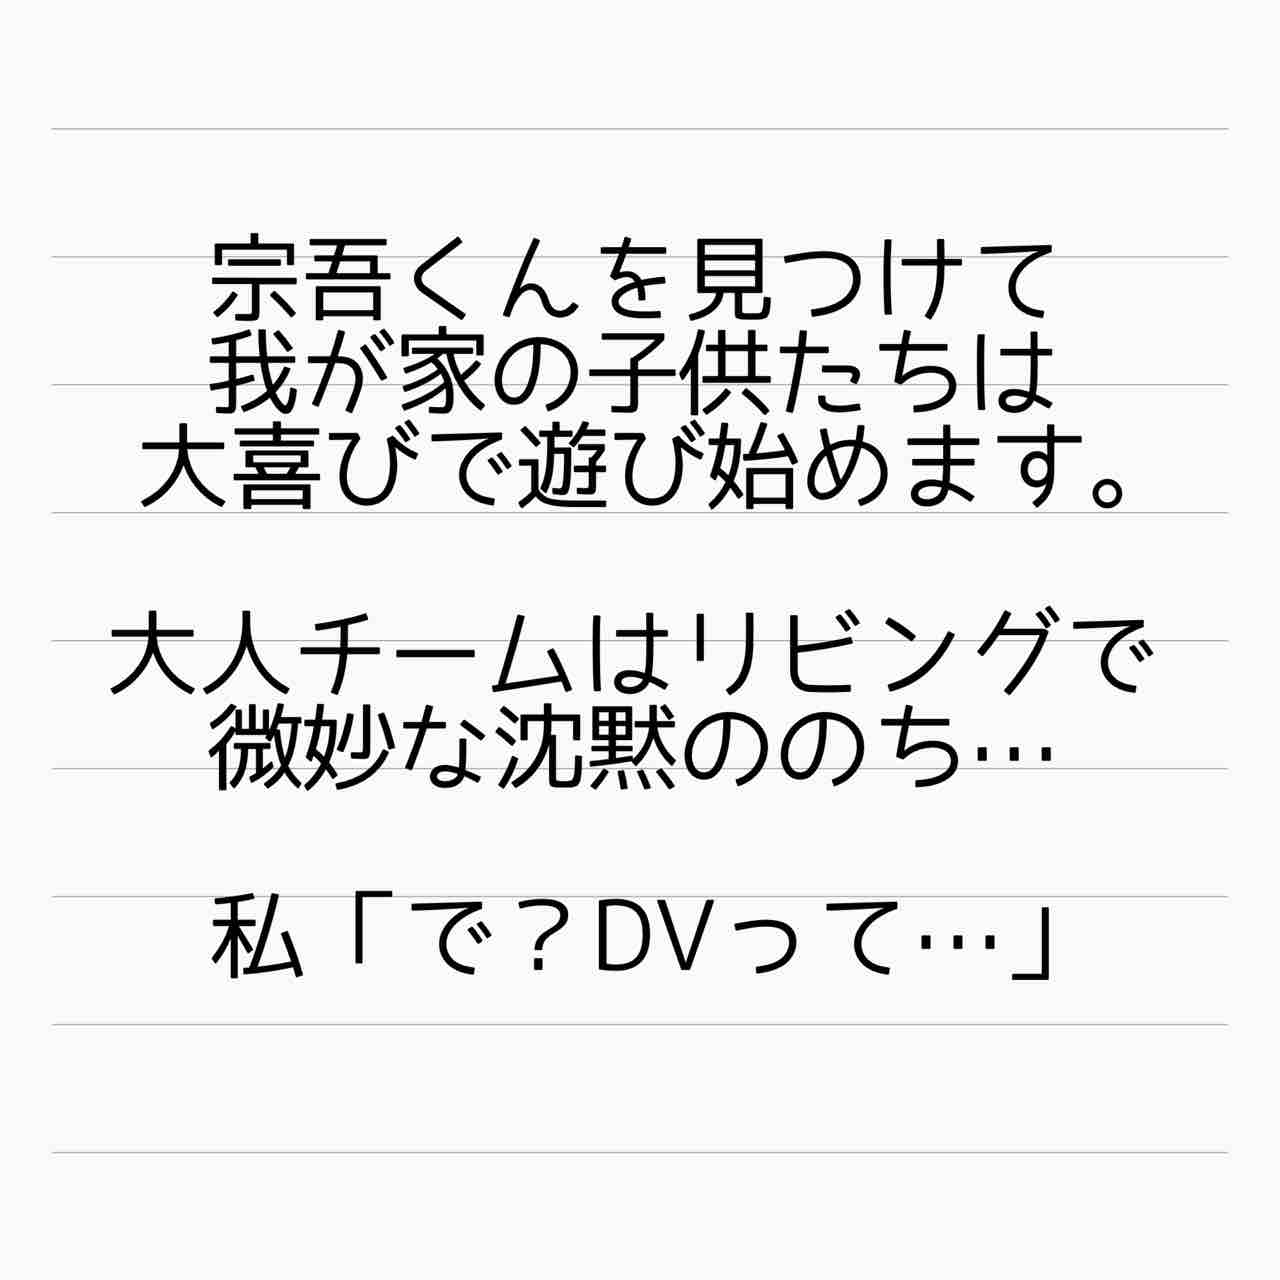 宗吾くんを見つけて
我が家の子供たちは
大喜びで遊び始めます。
大人チームはリビングで
微妙な沈黙ののち…
私「で？DVって…」